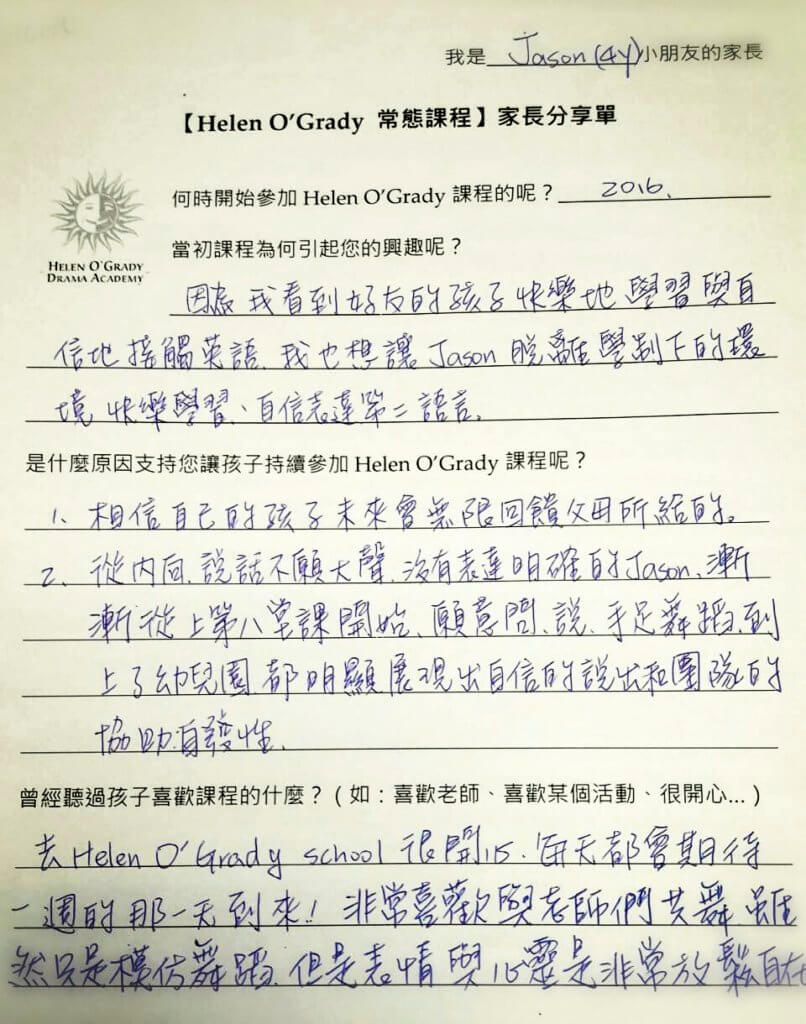 我是 Jason (4y) 小朋友的家長
【Helen O'Grady 常態課程】家長分享單
何時開始參加 Helen O'Grady 課程的呢？ 2016.
當初課程為何引起您的興趣呢？
HELEN O'GRADY
DRAMA ACADEMY
因為我看到好友的孩子快樂地學習與自
信地接觸英語.我也想讓 Jason 脫離學制下的環
境快樂學習、自信表達第二語言.
是什麼原因支持您讓孩子持續參加 Helen O'Grady 課程呢？
1. 相信自己的孩子未來會無限回饋父母所給的。
2. 從內向.說話不願大聲.沒有表達明確的Jason.漸
漸從上第八堂課開始.願意問.說.手足舞蹈.到
上了幼兒園都明顯展現出自信的說出和團隊的
協助.自發性.
曾經聽過孩子喜歡課程的什麼？（如：喜歡老師、喜歡某個活動、很開心...）
去 Helen O'Grady school 很開心.每天都會期待
一週的那一天到來！非常喜歡與老師們共舞 雖
然只是模仿舞蹈.但是表情與心靈是非常放鬆自在